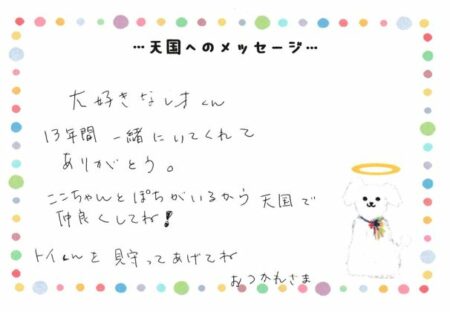 …天国へのメッセージ…
大好きな
13年間 一緒にいてくれて
ありがとう。
ここちゃんとぽちがいるから 天国で
仲良くしてね!
トイくんを 見守ってあげてね
おつかれさま